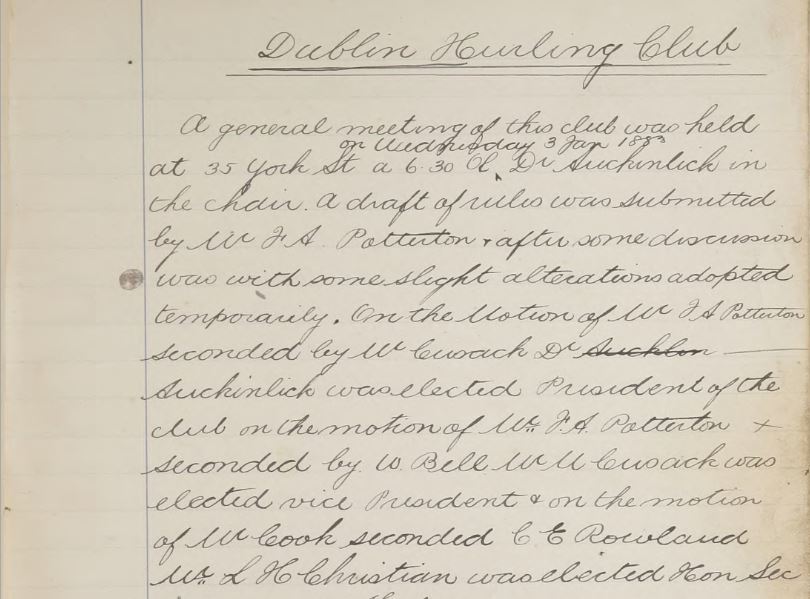 Dublin Hurling Club
A general meeting of this club was held
on Wednesday 3 Jan 1883
at 35 York St a 6.30 Dr Auckinlick in
the chair. A draft of rules was submitted
by Mr F.A. Potterton + after some discussion
was with some slight alterations adopted
temporarily. On the Motion of Mr F A Potterton
seconded by Mr Cusack Dr Aucklin
Auckinlick was elected President of the
club on the motion of Mr. F.A. Potterton +
seconded by W. Bell Mr M Cusack was
elected vice President & on the motion
of Mr Cook seconded C E Rowland
Mr. L H Christian was elected Hon Sec